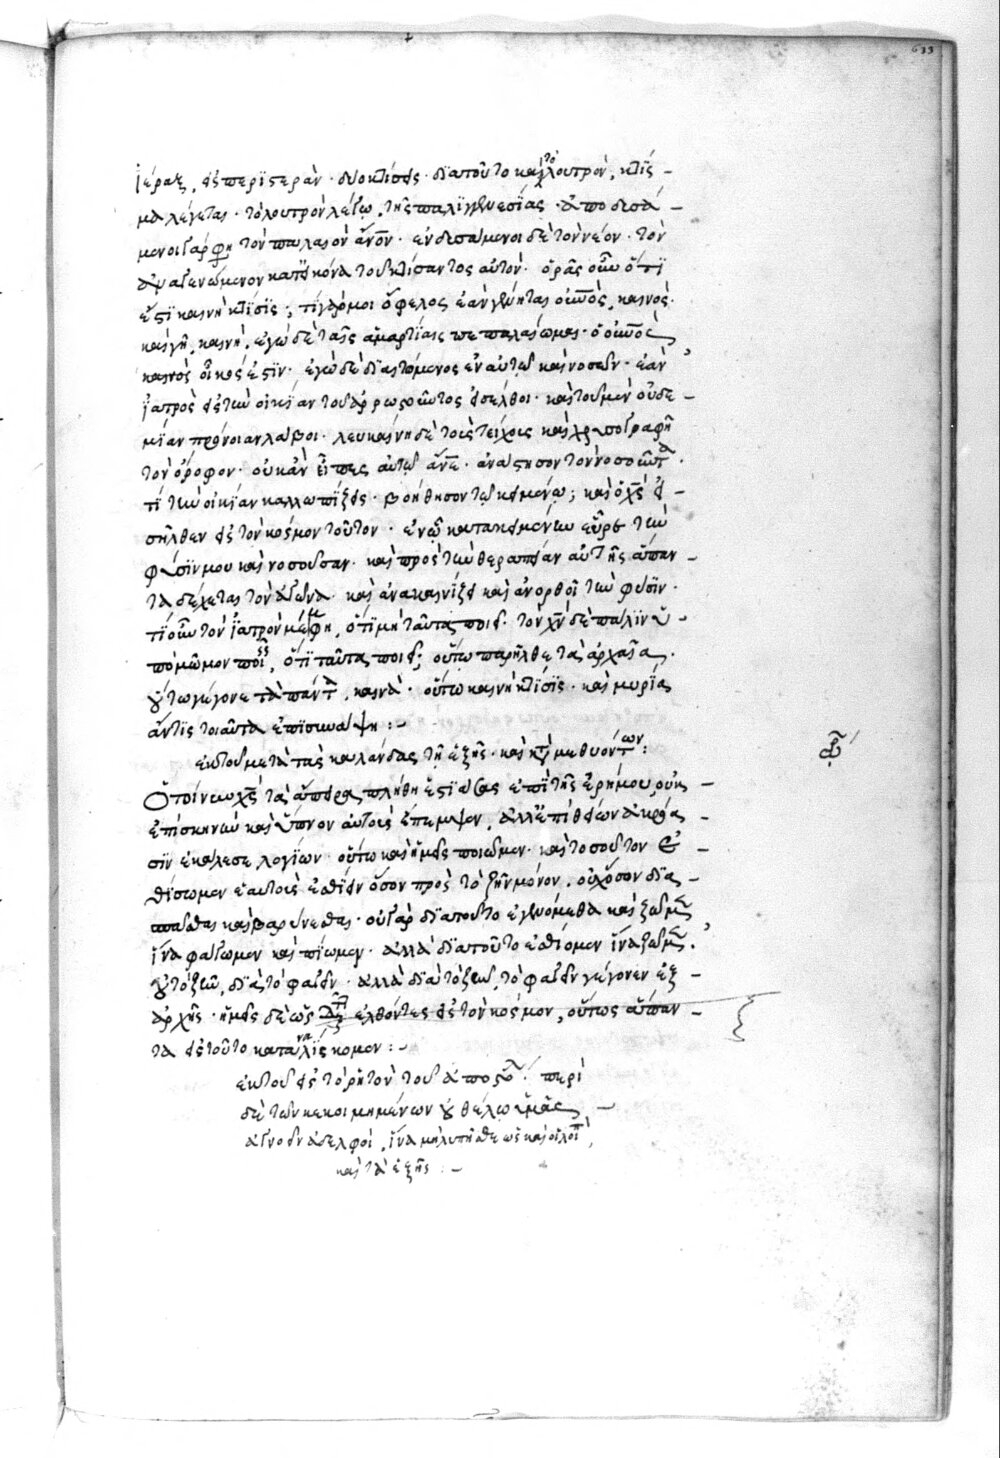 633
ἱέραξ, εἰς περιστερὰν· δύο κτίσεις· διὰ τοῦτο καὶ τὸ λουτρὸν, κτίσ
μα λέγεται· τὸ λουτρὸν λέγω, τῆς παλιγγενεσίας· ἀποδυσά
μενοι γάρ φη τὸν παλαιὸν ἄνον· ἐνδυσάμενοι δὲ τὸν νέον· τὸν
ἀνακενούμενον κατ' εἰκόνα τοῦ κτίσαντος αὐτόν· ὁρᾶς οὖν ὅτι
ἐστὶ καινὴ κτίσις; τί γάρ μοι ὄφελος ἐὰν γένηται οὐνὸς, καινὸς·
καὶ γῆ, καινὴ, ἐγὼ δὲ ταῖς ἁμαρτίαις πεπαλαίωμαι· ὁ οὐνὸς
καινὸς οἶκός ἐστιν· ἐγὼ δὲ διαιτώμενος ἐν αὐτῷ καὶ νοσῶν· ἐὰν
ἰατρὸς εἰς τὴν οἰκίαν τοῦ ἀρρωστοῦντος εἰσέλθοι· καὶ τοῦ μὲν οὐδε
μίαν πρόνοιαν λάβοι· λευκαίνη δὲ τοὺς τοίχους καὶ χρυσογραφῆ
τὸν ὄροφον· οὐκ ἂν εἴποις αὐτῷ ἄνε· ἀνάστησον τὸν νοσοῦντα·
τί τὴν οἰκίαν καλλωπίζεις· βοήθησον τῷ κειμένῳ; καὶ ὁ χς εἰ
σῆλθεν εἰς τὸν κόσμον τοῦτον· ἐν ᾧ κατακειμένην εὗρε τὴν
φύσιν μου καὶ νοσοῦσαν· καὶ πρὸς τὴν θεραπείαν αὐτῆς ἅπαν
τα δέχεται τὸν ἀγῶνα· καὶ ἀνακαινίζει καὶ ἀνορθοῖ τὴν φύσιν·
τί οὖν τὸν ἰατρὸν μέμφη, ὅτι μὴ ταῦτα ποιεῖ· τὸν χν δὲ πάλιν ὕ
πόμωμον ποιεῖς, ὅτι ταῦτα ποιεῖ; οὕτω παρῆλθε τὰ ἀρχαῖα·
οὕτω γέγονε τὰ πάντα, καινά· οὕτω καινὴ κτίσις· καὶ μυρία
ἄν τις τοιαῦτα ἐπισυνάψη :~
ἐκ τοῦ μετὰ τὰς καλάνδας τῇ ἑξῆς· καὶ κατὰ μεθυόντων :
Ὅτι οἴνω χς τὰ ἄπειρα πλήθη ἑστιάσας ἐπὶ τῆς ἐρήμου οὐκ
ἐπὶ σκηνὴν καὶ ὕπνον αὐτοὺς ἔπεμψεν, ἀλλ' ἐπὶ θείων ἀκρόα
σιν ἐκάλεσε λογίων· οὕτω καὶ ἡμεῖς ποιῶμεν· καὶ τοσοῦτον ἐ
θίσωμεν ἑαυτοὺς ἐσθίειν ὅσον πρὸς τὸ ζῆν μόνον, οὐχ ὅσον δια
σπᾶσθαι καὶ βαρύνεσθαι· οὐ γὰρ διὰ τοῦτο ἐγενόμεθα καὶ ζῶμεν
ἵνα φάγωμεν καὶ πίωμεν· ἀλλὰ διὰ τοῦτο ἐσθίομεν ἵνα ζῶμεν·
οὐ τὸ ζῆν, διὰ τὸ φαγεῖν· ἀλλὰ διὰ τὸ ζῆν, τὸ φαγεῖν γέγονεν ἐξ
ἀρχῆς· ἡμεῖς δὲ ὡς ἐλθόντες εἰς τὸν κόσμον, οὕτως ἅπαν
τα εἰς τοῦτο καταναλίσκομεν :~
ἐκ τοῦ εἰς τὸ ῥητὸν τοῦ ἀποστόλου περὶ
δὲ τῶν κεκοιμημένων οὐ θέλω ὑμᾶς
ἀγνοεῖν ἀδελφοὶ, ἵνα μὴ λυπῆσθε ὡς καὶ οἱ λοιποὶ
καὶ τὰ ἑξῆς :~